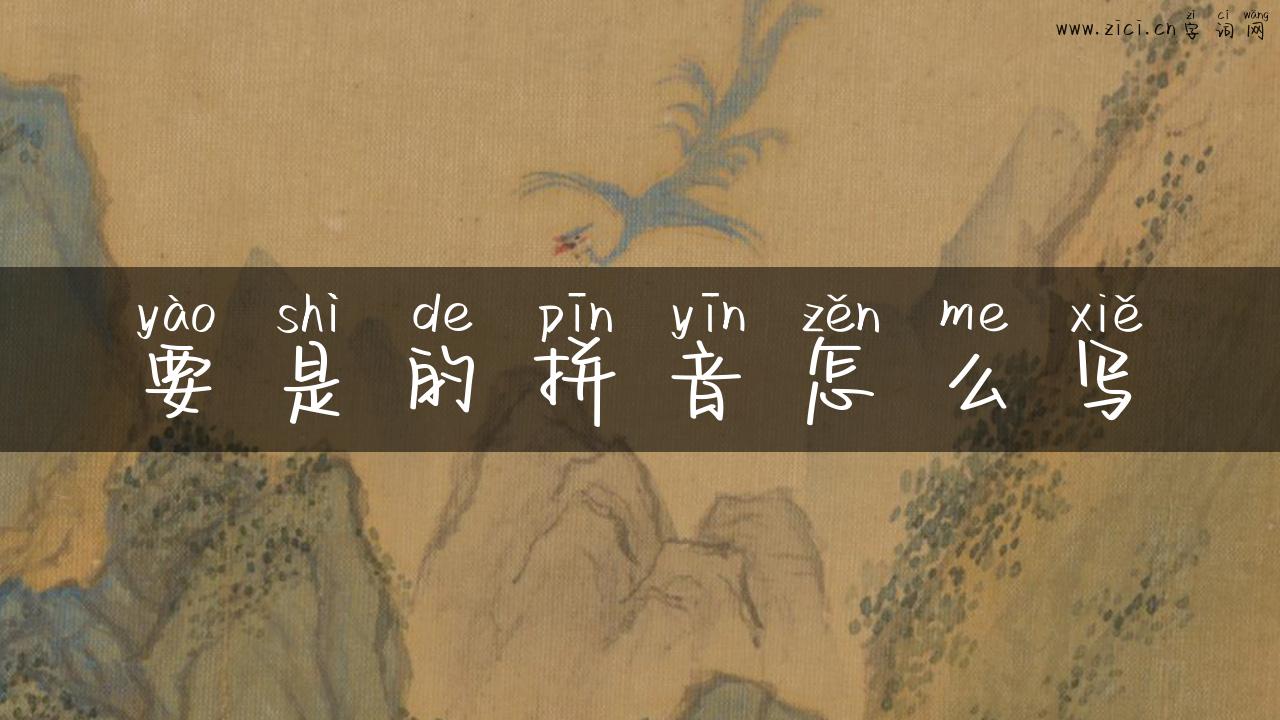 zì cí wǎng
www.zici.cn字词网
yào shì de pīn yīn zěn me xiě
要是的拼音怎么写